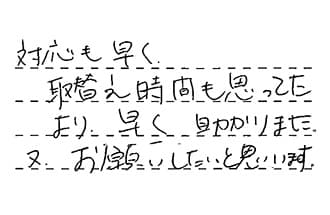 対応も早く、
取替え時間も思ってた
より、早く 助かりました
又、お願いしたいと思います。